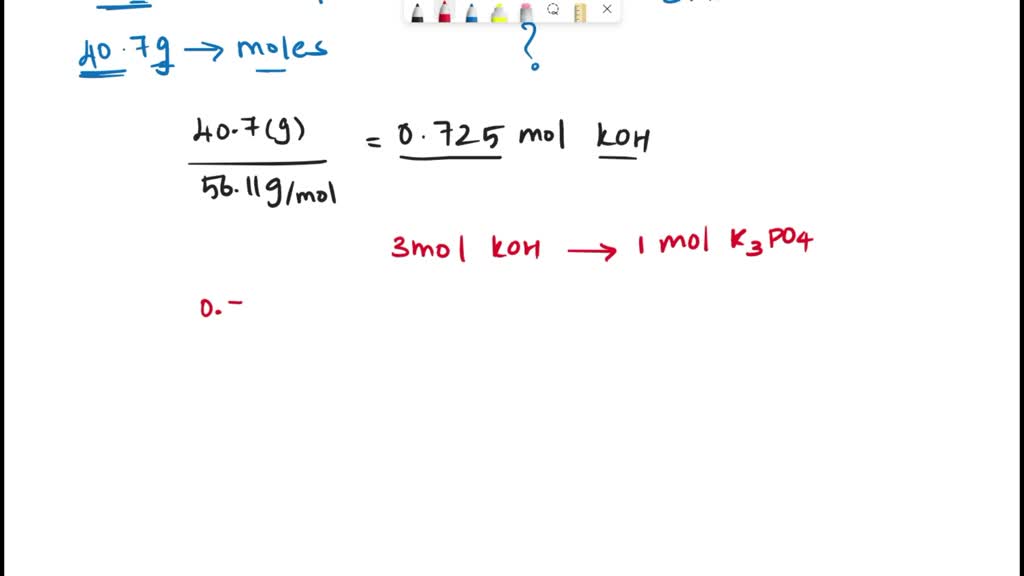 40.7g → moles ?
40.7(g) = 0.725 mol KOH
56.11g/mol
3mol KOH → 1 mol K3PO4
0.